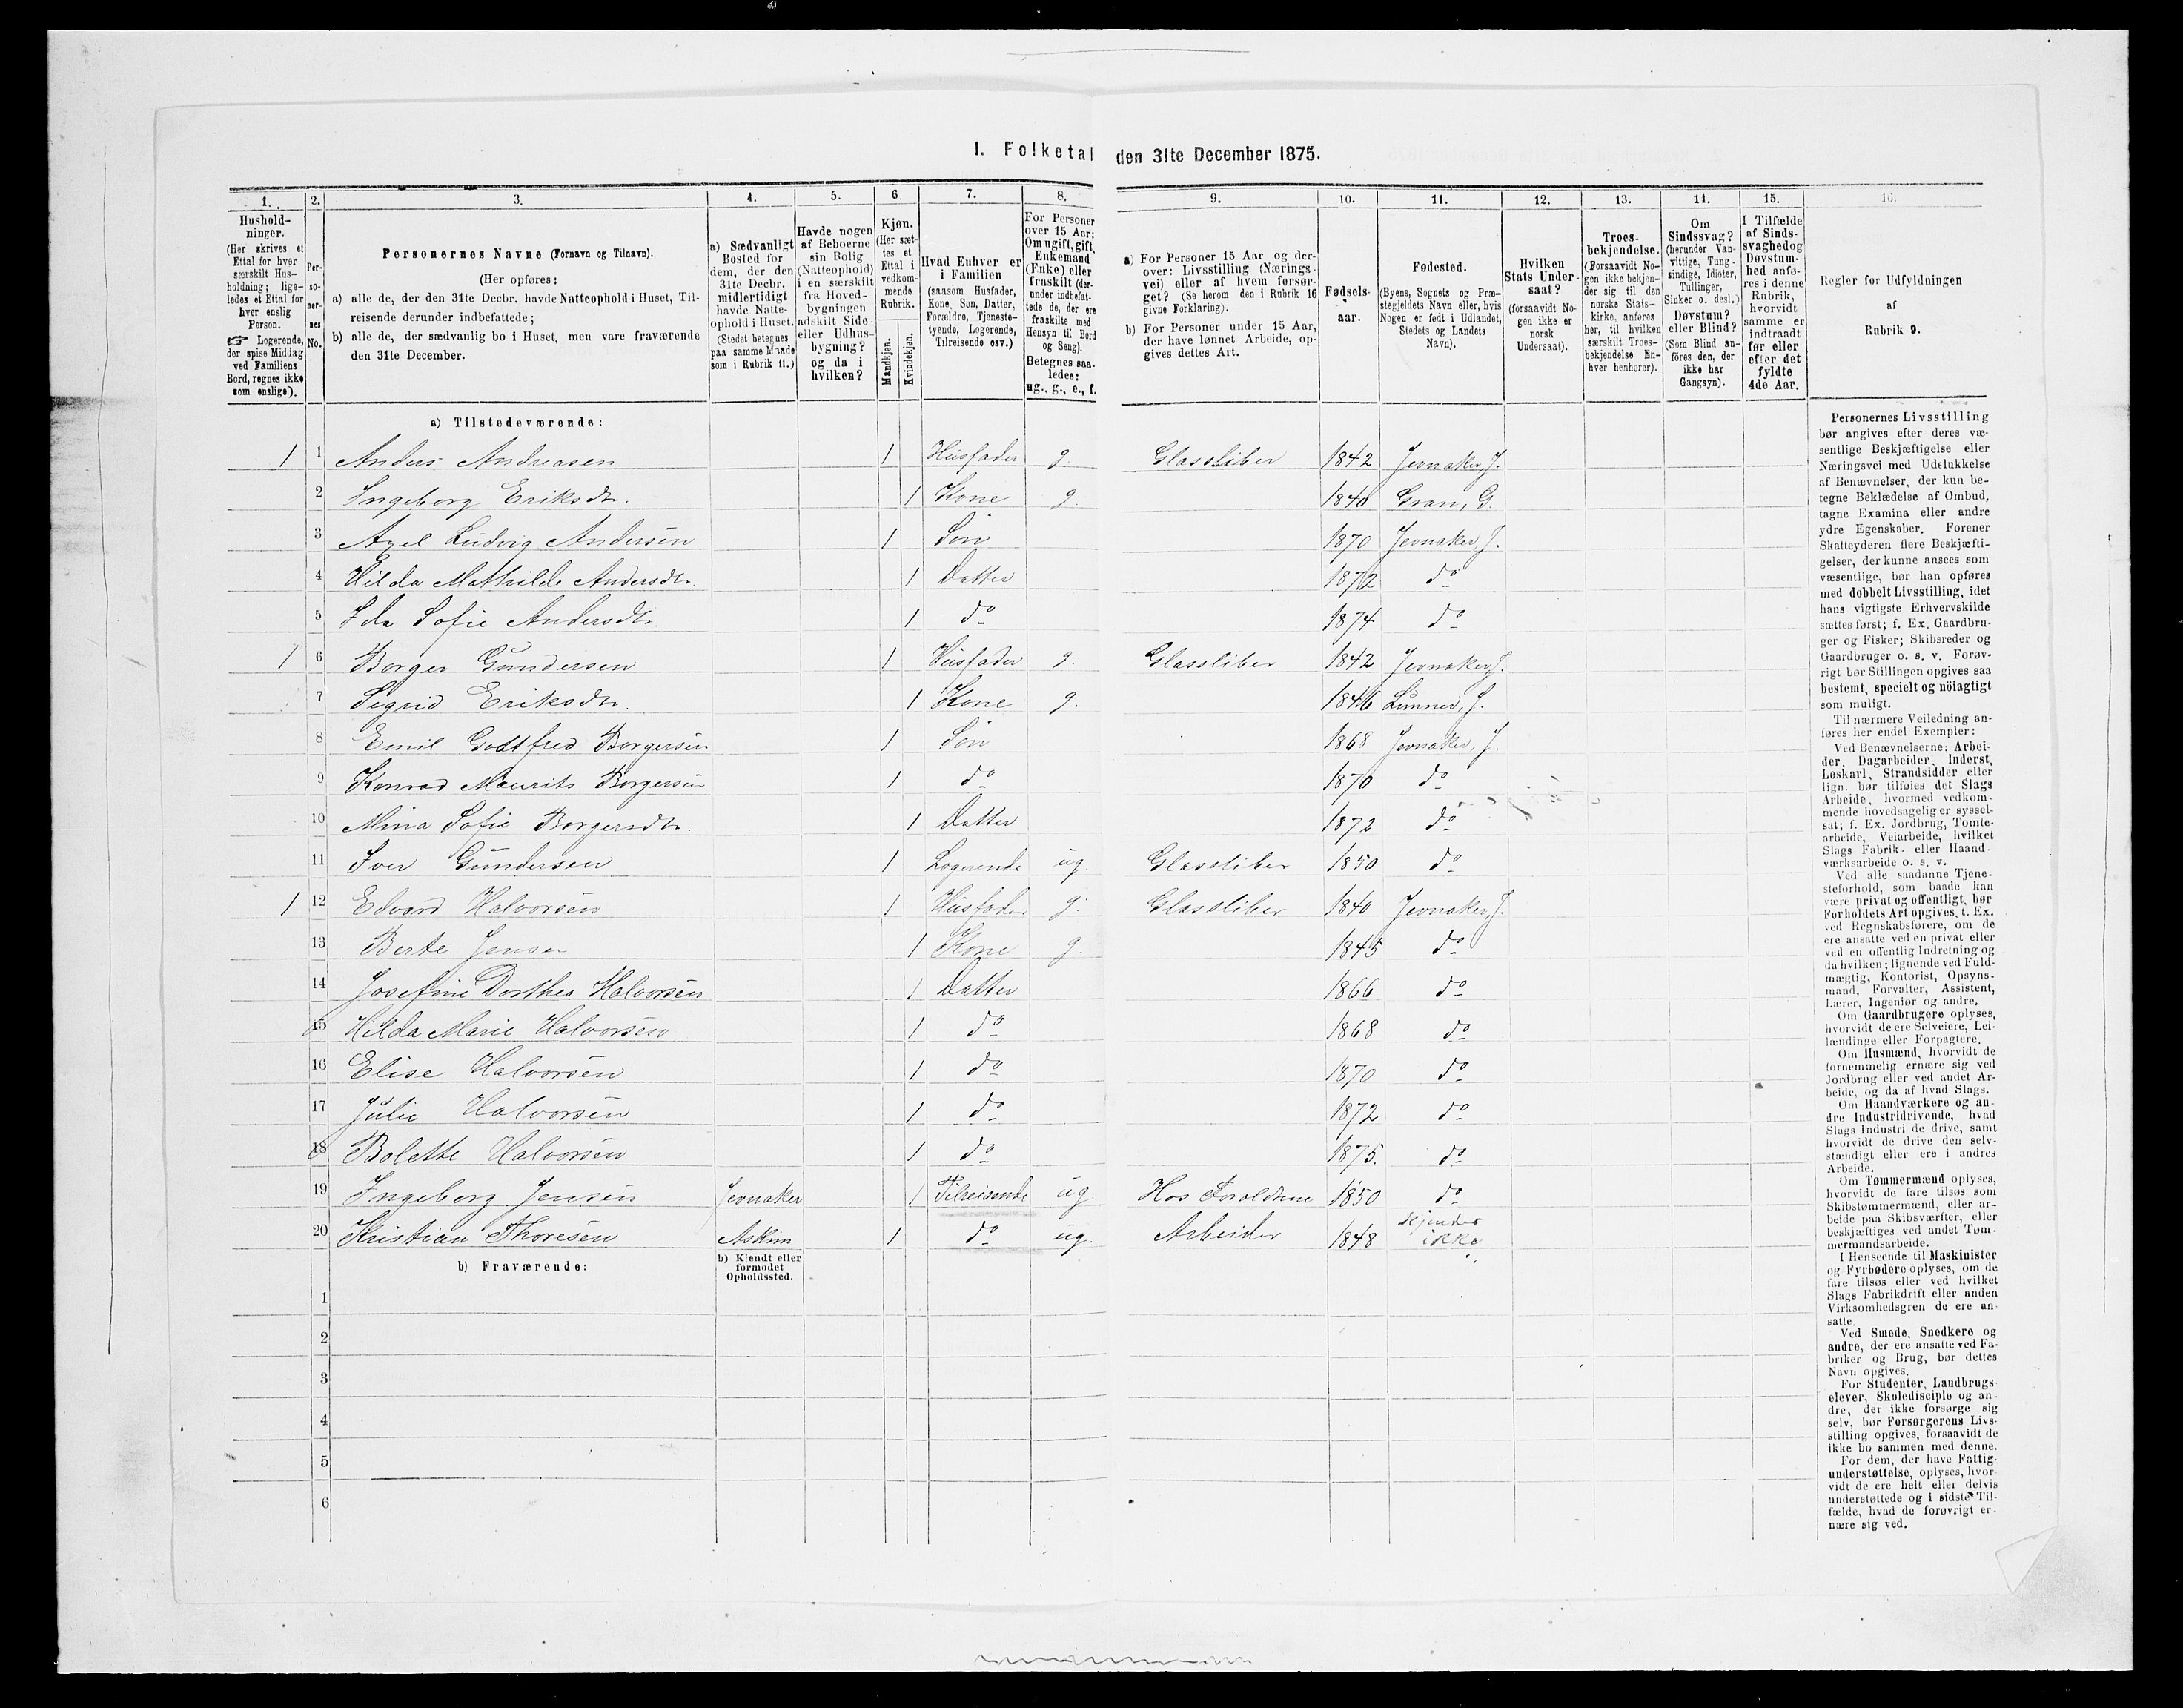 I. Folketal den 31te December 1875.
1. 2. 3. 4. 5. 6. 7. 8. 9. 10. 11. 12. 13. 14. 15. 16.
Hushold-
ninger.
(Her skrives et
Ettal for hver
særskilt Hus-
holdning; lige-
ledes et Ettal for
hver enslig
Person.
☞ Logerende,
der spise Middag
ved Familiens
Bord, regnes ikke
som enslige).
Per-
so-
ner-
nes
No.
Personernes Navne (Fornavn og Tilnavn).
(Her opføres:
a) alle de, der den 31te Decbr. havde Natteophold i Huset, Til-
reisende derunder indbefattede;
b) alle de, der sædvanlig bo i Huset, men vare fraværende
den 31te December.
a) Sædvanligt
Bosted for
dem, der den
31te Decbr.
midlertidigt
havde Natte-
ophold i Huset.
(Stedet betegnes
paa samme Maade
som i Rubrik 11.)
Havde nogen
af Beboerne
sin Bolig
(Natteophold)
i en særskilt
fra Hoved-
bygningen
adskilt Side-
eller Udhus-
bygning?
og da i
hvilken?
Kjøn.
(Her sæt-
tes et
Ettal i
vedkom-
mende
Rubrik.
Mandkjøn.
Kvindekjøn.
Hvad Enhver er
i Familien
(saasom Husfader,
Kone, Søn, Datter,
Forældre, Tjeneste-
tyende, Logerende,
Tilreisende osv.)
For Personer
over 15 Aar:
Om ugift, gift,
Enkemand
(Enke) eller
fraskilt (der-
under indbefat-
tede de, der ere
fraskilte med
Hensyn til Bord
og Seng).
Betegnes saa-
ledes:
ug., g., e., f.
a) For Personer 15 Aar og der-
over: Livsstilling (Nærings-
vei) eller af hvem forsør-
get? (Se herom den i Rubrik 16
givne Forklaring).
b) For Personer under 15 Aar,
der have lønnet Arbeide, op-
gives dettes Art.
Fødsels-
aar.
Fødested.
(Byens, Sognets og Præ-
stegjeldets Navn eller, hvis
Nogen er født i Udlandet,
Stedets og Landets
Navn).
Hvilken
Stats Under-
saat?
(forsaavidt No-
gen ikke er
norsk
Undersaat).
Troes-
bekjendelse.
(Forsaavidt No-
gen ikke bekjen-
der sig til den
norske Stats-
kirke, anføres
her, til hvilken
særskilt Troes-
bekjendelse En-
hver henhører).
Om
Sindssvag?
(herunder Van-
vittige, Tung-
sindige, Idioter,
Tullinger,
Sinker o. desl.)
Døvstum?
eller Blind?
(Som Blind an-
föres den, der
ikke har
Gangsyn).
I Tilfælde
af Sinds-
svaghed og
Døvstum-
hed anfø-
res i denne
Rubrik,
hvorvidt
samme er
indtraadt
før eller
efter det
fyldte
4de Aar.
Regler for Udfyldningen
af
Rubrik 9.
a) Tilstedeværende:
1 1 Anders Andreasen 1 Husfader g. Glassliber 1842 Jevnaker, J.
2 Ingeborg Eriksdtr. 1 Kone g. 1840 Gran, G.
3 Axel Ludvig Andersen 1 Søn 1870 Jevnaker, J.
4 Hilda Mathilde Andersdtr. 1 Datter 1872 do
5 Ida Sofie Andersdtr. 1 do 1874 do
1 6 Borger Gundersen 1 Husfader g. Glassliber 1842 Jevnaker, J.
7 Sigrid Eriksdtr. 1 Kone g. 1846 Lunner, J.
8 Emil Godtfred Borgersen 1 Søn 1868 Jevnaker, J.
9 Konrad Maurits Borgersen 1 do 1870 do
10 Mina Sofie Borgersdtr. 1 Datter 1872 do
11 Iver Gundersen 1 Logerende ug. Glassliber 1850 do
1 12 Edvard Halvorsen 1 Husfader g. Glassliber 1840 Jevnaker, J.
13 Berte Jensen 1 Kone g. 1845 do
14 Josefine Dorthea Halvorsen 1 Datter 1866 do
15 Hilda Marie Halvorsen 1 do 1868 do
16 Elise Halvorsen 1 do 1870 do
17 Julie Halvorsen 1 do 1872 do
18 Bolette Halvorsen 1 do 1875. do
19 Ingeborg Jensen Jevnaker 1 Tilreisende ug. Hos Foreldrene 1850 do
20 Kristian Thoresen Askim 1 do ug. Arbeider 1848 kjender ikke
b) Fraværende:
b) Kjendt eller
formodet
Opholdssted.
1
2
3
4
5
6
Personernes Livsstilling
bør angives efter deres væ-
sentlige Beskjæftigelse eller
Næringsvei med Udelukkelse
af Benævnelser, der kun be-
tegne Beklædelse af Ombud,
tagne Examina eller andre
ydre Egenskaber. Forener
Skatteyderen flere Beskjæfti-
gelser, der kunne ansees som
væsentlige, bør han opføres
med dobbelt Livsstilling, idet
hans vigtigste Erhvervskilde
sættes først; f. Ex. Gaardbru-
ger og Fisker; Skibsreder og
Gaardbruger o. s. v. Forøv-
rigt bør Stillingen opgives saa
bestemt, specielt og nöiagtigt
som muligt.
Til nærmere Veiledning an-
føres her endel Exempler:
Ved Benævnelserne: Arbei-
der, Dagarbeider, Inderst,
Løskarl, Strandsidder eller
lign. bør tilføies det Slags
Arbeide, hvormed vedkom-
mende hovedsagelig er syssel-
sat; f. Ex. Jordbrug, Tomte-
arbeide, Veiarbeide, hvilket
Slags Fabrik- eller Haand-
værksarbeide o. s. v.
Ved alle saadanne Tjene-
steforhold, som baade kan
være privat og offentligt, bør
Forholdets Art opgives, t. Ex.
ved Regnskabsførere, om de
ere ansatte ved en privat eller
ved en offentlig Indretning og
da hvilken; lignende ved Fuld-
mægtig, Kontorist, Opsyns-
mand, Forvalter, Assistent,
Lærer, Ingeniør og andre.
Om Gaardbrugere oplyses,
hvorvidt de ere Selveiere, Lei-
lændinge eller Forpagtere.
Om Husmænd, hvorvidt de
fornemmelig ernære sig ved
Jordbrug eller ved andet Ar-
beide, og da af hvad Slags.
Om Haandværkere og an-
dre Industridrivende, hvad
Slags Industri de drive, samt
hvorvidt de drive den selv-
stændigt eller ere i andres
Arbeide.
Om Tømmermænd oplyses,
hvorvidt de fare tilsøs som
Skibstømmermænd, eller ar-
beide paa Skibsværfter, eller
beskjæftiges ved andet Tøm-
mermandsarbeide.
I Henseende til Maskinister
og Fyrbødere oplyses, om de
fare tilsøs eller ved hvilket
Slags Fabrikdrift eller anden
Virksomhedsgren de ere an-
satte.
Ved Smede, Snedkere og
andre, der ere ansatte ved Fa-
briker og Brug, bør dettes
Navn opgives.
For Studenter, Landbrugs-
elever, Skoledisciple og an-
dre, der ikke forsørge sig
selv, bør Forsørgerens Livs-
stilling opgives, forsaavidt de
ikke bo sammen med denne.
For dem, der have Fattig-
understøttelse, oplyses, hvor-
vidt de ere helt eller delvis
understøttede og i sidste Til-
fælde, hvad de forøvrigt er-
nære sig ved.